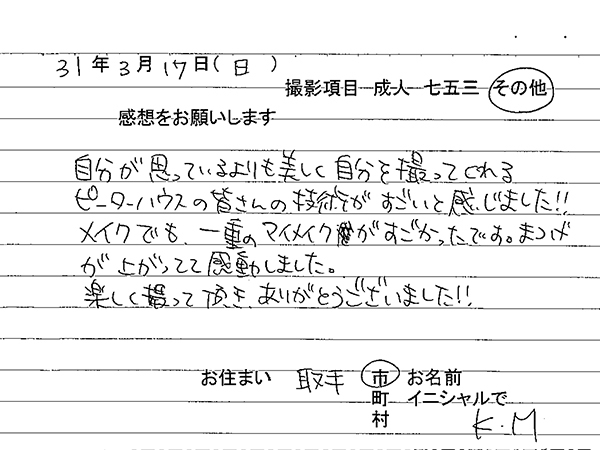 31年3月17日(日)
撮影項目 成人 七五三 その他
感想をお願いします
自分が思っているよりも美しく自分を撮ってくれる
ピーターハウスの皆さんの技術がすごいと感じました!!
メイクでも、一重のアイメイクがすごかったです。まつげ
が上がってて感動しました。
楽しく撮って頂き、ありがとうございました!!
お住まい 取手 市 お名前
町 イニシャルで
村 K.M